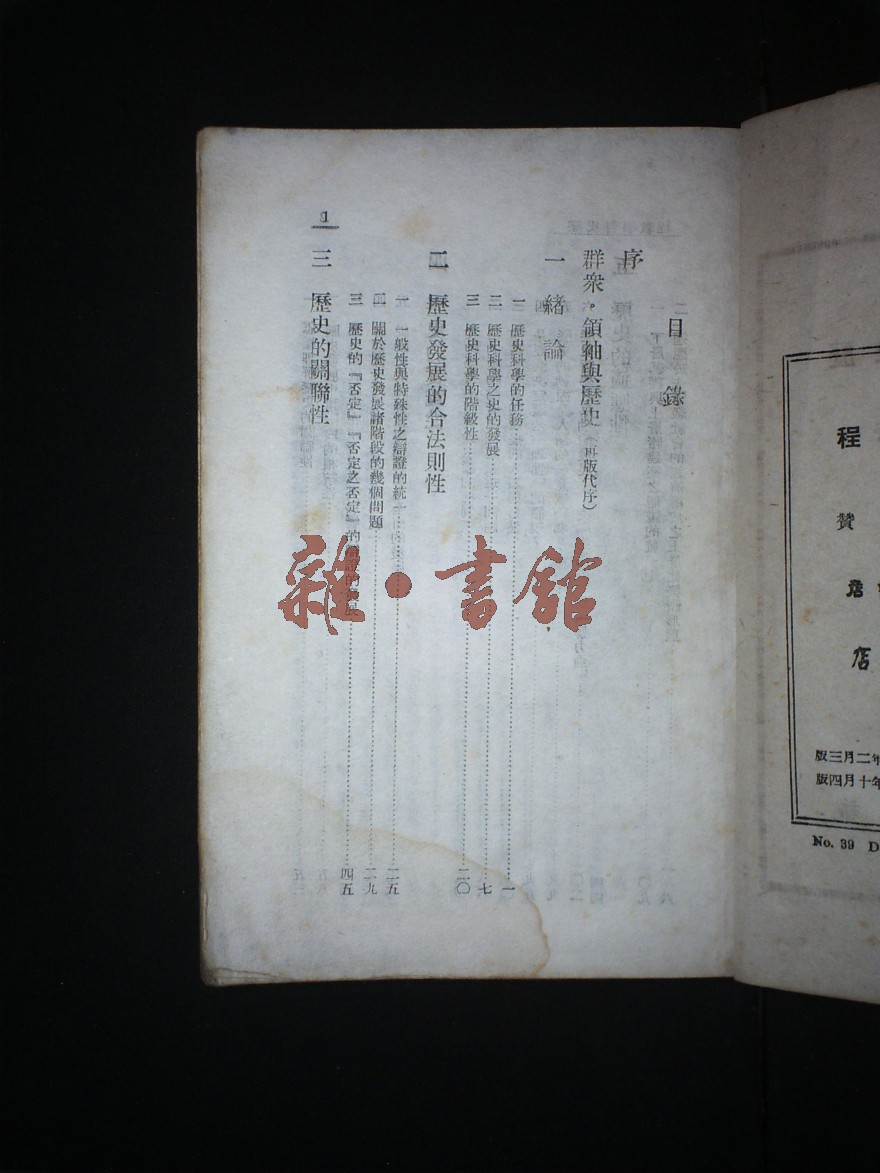 目錄
序
群衆·領袖與歷史（再版代序）
一 緒論
一 歷史科學的任務 一
二 歷史科學之史的發展 七
三 歷史科學的階級性 二〇
二 歷史發展的合法則性
一 一般性與特殊性之辯證的統一 二五
二 關於歷史發展諸階段的幾個問題 二九
三 歷史的『否定』『否定之否定』的 四五
三 歷史的關聯性
1
雜·書館
程
贊
店
版三月二年
版四月十年
No. 39 D